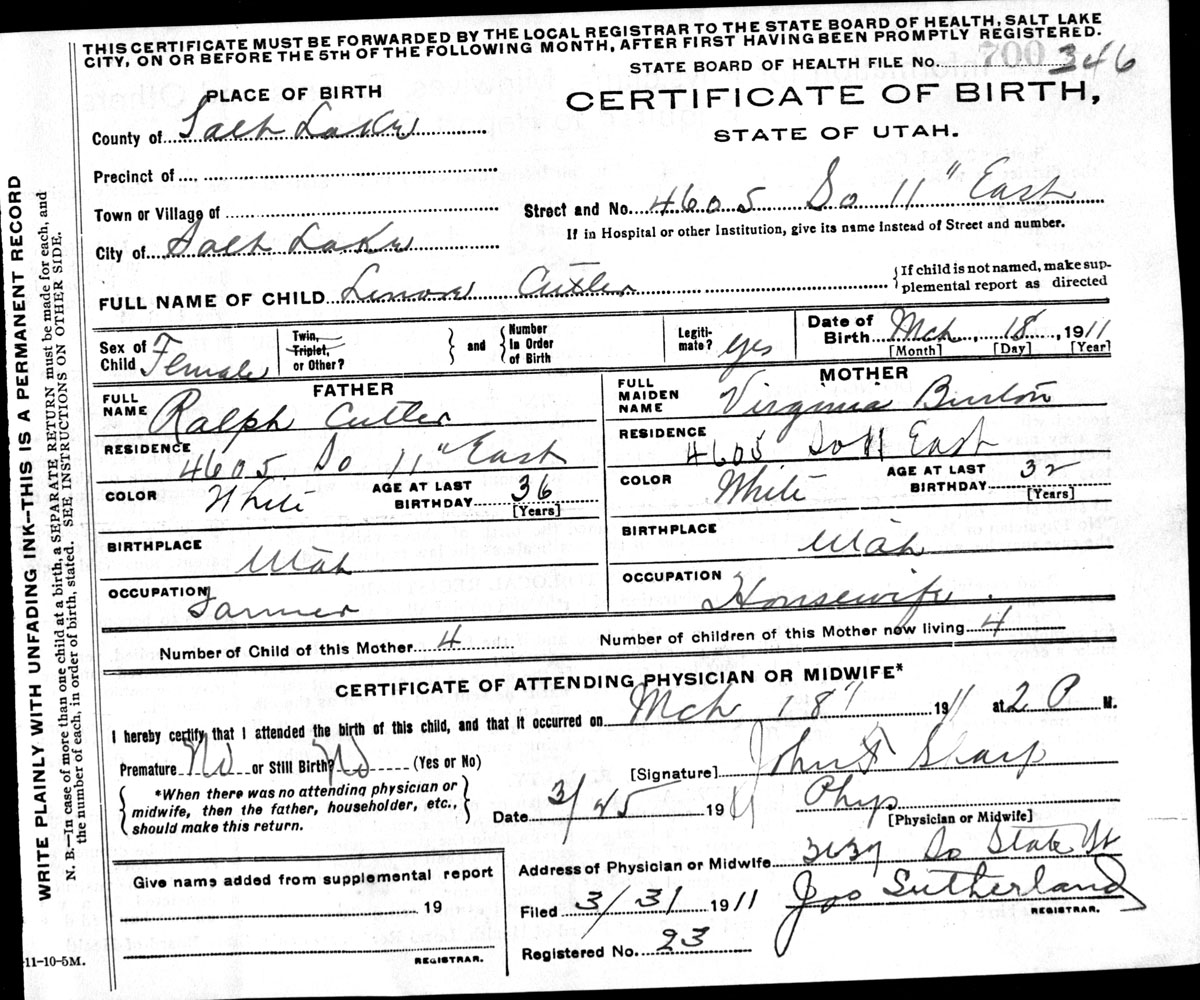 THIS CERTIFICATE MUST BE FORWARDED BY THE LOCAL REGISTRAR TO THE STATE BOARD OF HEALTH, SALT LAKE
CITY, ON OR BEFORE THE 5TH OF THE FOLLOWING MONTH, AFTER FIRST HAVING BEEN PROMPTLY REGISTERED.
STATE BOARD OF HEALTH FILE No. 700 346
PLACE OF BIRTH
CERTIFICATE OF BIRTH,
STATE OF UTAH.
County of Salt Lake
Precinct of
Town or Village of
Street and No. 4605 So 11" East
If in Hospital or other Institution, give its name instead of Street and number.
City of Salt Lake
FULL NAME OF CHILD Lenore Cutler
{If child is not named, make sup-
plemental report as directed
Sex of Child Female
Twin, Triplet, or Other?
} and {
Number In Order of Birth
Legiti-mate? yes
Date of Birth Mch 18, 1911
[Month] [Day] [Year]
FATHER
MOTHER
FULL NAME Ralph Cutler
FULL MAIDEN NAME Virginia Burton
RESIDENCE 4605 So 11" East
RESIDENCE 4605 So 11 East
COLOR White AGE AT LAST BIRTHDAY 36 [Years]
COLOR White AGE AT LAST BIRTHDAY 32 [Years]
BIRTHPLACE Utah
BIRTHPLACE Utah
OCCUPATION Farmer
OCCUPATION Housewife.
Number of Child of this Mother 4 Number of children of this Mother now living 4
CERTIFICATE OF ATTENDING PHYSICIAN OR MIDWIFE*
I hereby certify that I attended the birth of this child, and that it occurred on Mch 18" 1911 at 2 P M.
Premature No or Still Birth? No (Yes or No)
[Signature] John F Sharp
{*When there was no attending physician or
midwife, then the father, householder, etc.,
should make this return.}
Date 3/ 1911 Phys
[Physician or Midwife]
Address of Physician or Midwife So State St
Give name added from supplemental report
19
REGISTRAR.
Filed 3/31 1911 Jos Sutherland
REGISTRAR.
Registered No. 23
11-10-5M.
WRITE PLAINLY WITH UNFADING INK—THIS IS A PERMANENT RECORD
N. B.—In case of more than one child at a birth, a SEPARATE RETURN must be made for each, and
the number of each, in order of birth, stated. SEE INSTRUCTIONS ON OTHER SIDE.